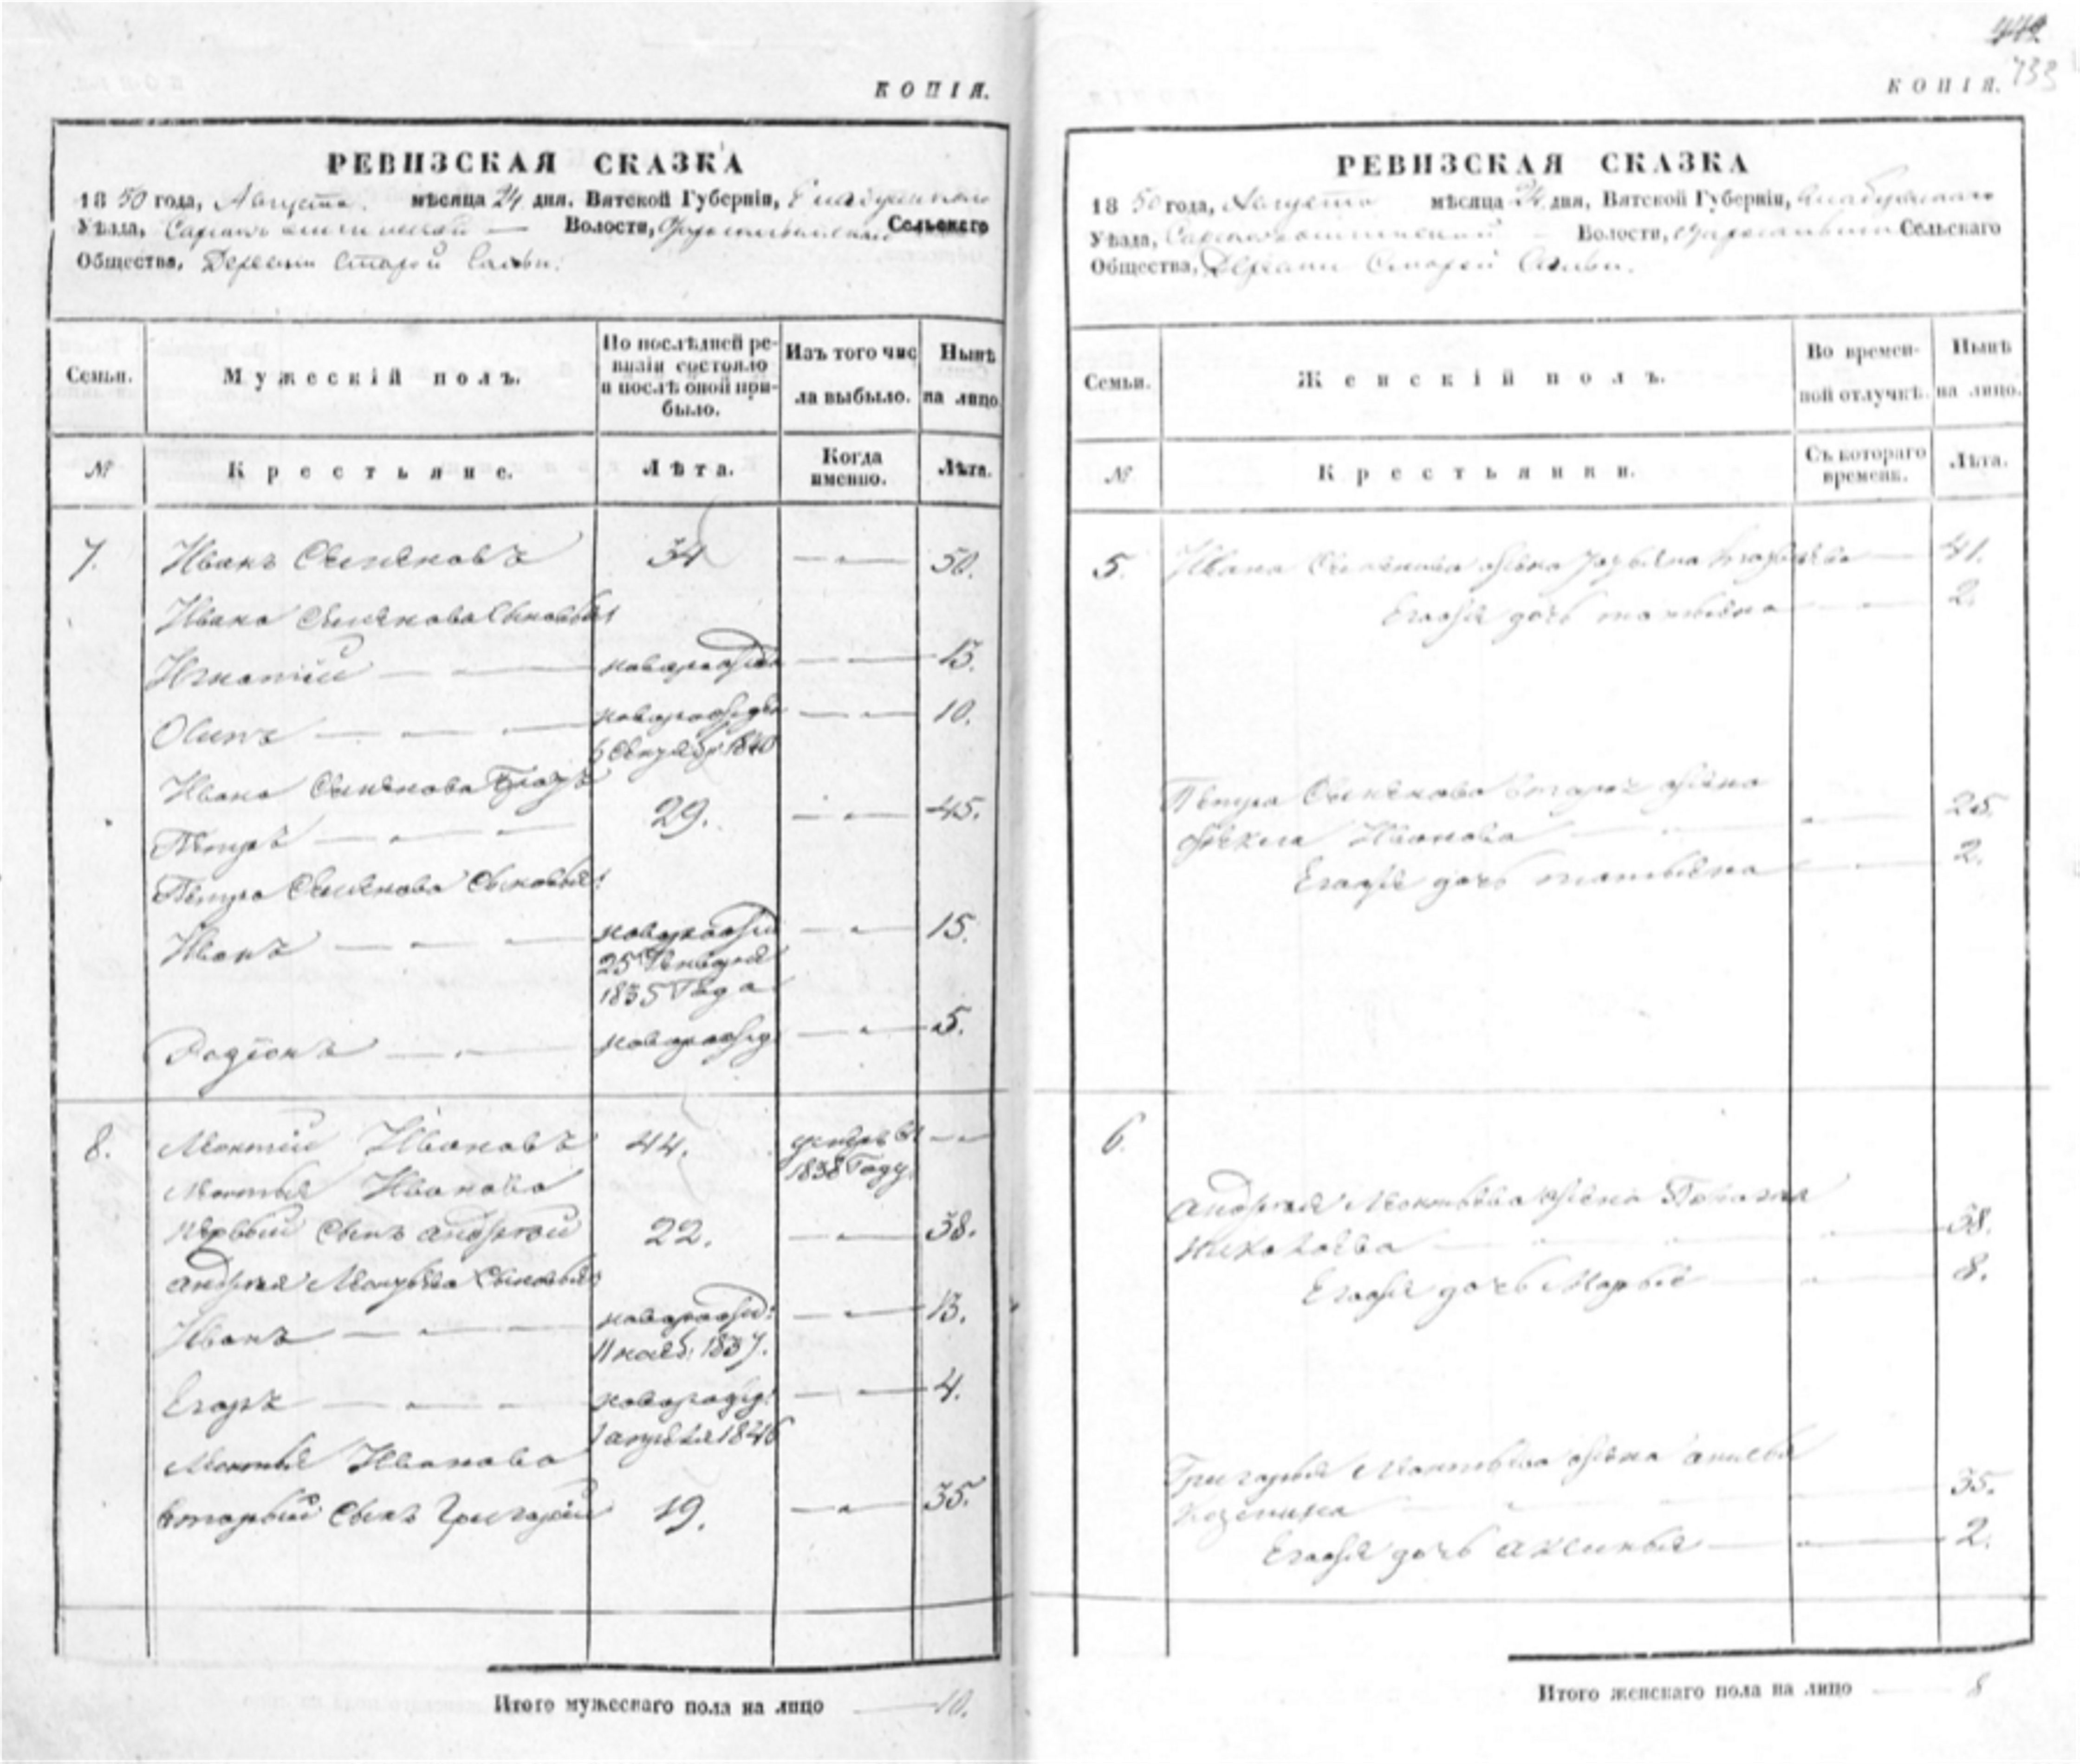 КОПІЯ.
РЕВИЗСКАЯ СКАЗКА
1850 года, Августа мѣсяца 24 дня, Вятской Губерніи, Елабужскаго
Уѣзда, Волости, Сельскаго
Общества, Деревни Старой Сальи.
Семьи. Мужескій полъ. По послѣдней ревизіи состояло и послѣ оной прибыло. Изъ того числа выбыло. Нынѣ на лицо
№ Крестьяне. Лѣта. Когда именно. Лѣта.
7. Иванъ Семеновъ 34 — „ — 50.
Ивана Семенова сыновья
Игнатій — „ — новорожден — „ — 13.
Осипъ — „ — новорожден — „ — 10.
Сентября 1840
Ивана Семенова братъ
Петръ — „ — 29. — „ — 45.
Петра Семенова сыновья:
Иванъ — „ — новорожд — „ — 15.
25 Генваря
1835 Года
Родіонъ — „ — новорожд — „ — 5.
8. Леонтій Ивановъ 44. умеръ въ — „ —
1838 Году.
Леонтья Иванова
первый сынъ Андрей 22. — „ — 38.
Андрея Леонтьева сыновья
Иванъ — „ — новорожд: — „ — 13.
11 нояб: 1837.
Егоръ — „ — новорожд: — „ — 4.
1 апреля 1846
Леонтья Иванова
вторый сынъ Григорій 19. — „ — 35.
Итого мужескаго пола на лицо — 10.
442
733
КОПІЯ.
РЕВИЗСКАЯ СКАЗКА
1850 года, Августа мѣсяца 24 дня, Вятской Губерніи, Елабужскаго
Уѣзда, Волости, Сельскаго
Общества, Деревни Старой Сальи.
Семьи. Женскій полъ. Во временной отлучкѣ. Нынѣ на лицо.
№ Крестьянки. Съ котораго времени. Лѣта.
5. Ивана Семенова жена 41.
Егожъ дочь Татьяна — 2.
Петра Семенова жена
Фекла Иванова — „ — 25.
Егожъ дочь Татьяна — „ — 2.
6.
Андрея Леонтьева жена Пелагея
Николаева — „ — 38.
Егожъ дочь Марья — „ — 8.
Григорья Леонтьева жена
— „ — 35.
Егожъ дочь Аксинья — „ — 2.
Итого женскаго пола на лицо — 8